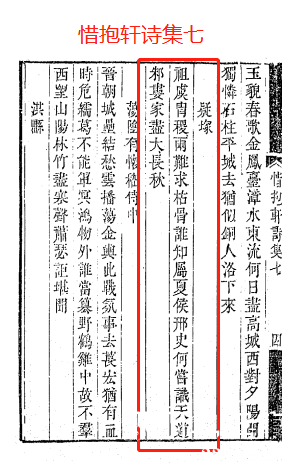 惜抱轩诗集七
惜抱軒詩集七
四
玉貌春歌金鳳臺漳水東流何日盡高城西對夕陽開
獨憐石柱平城去猶似銅人洛下來
疑塚
祖虞胄稷兩難求枯骨誰知屬夏侯邢史何嘗識天道
邾婁家盡大長秋
蕩陰有懷嵇侍中
晉朝城壘結愁雲播蕩金輿此戰氛事去萇宏猶有血
時危繻葛不能軍冥鴻物外誰當篡野鶴雞中故不羣
西望山陽林竹盡寒聲蕭瑟詎堪聞
淇縣